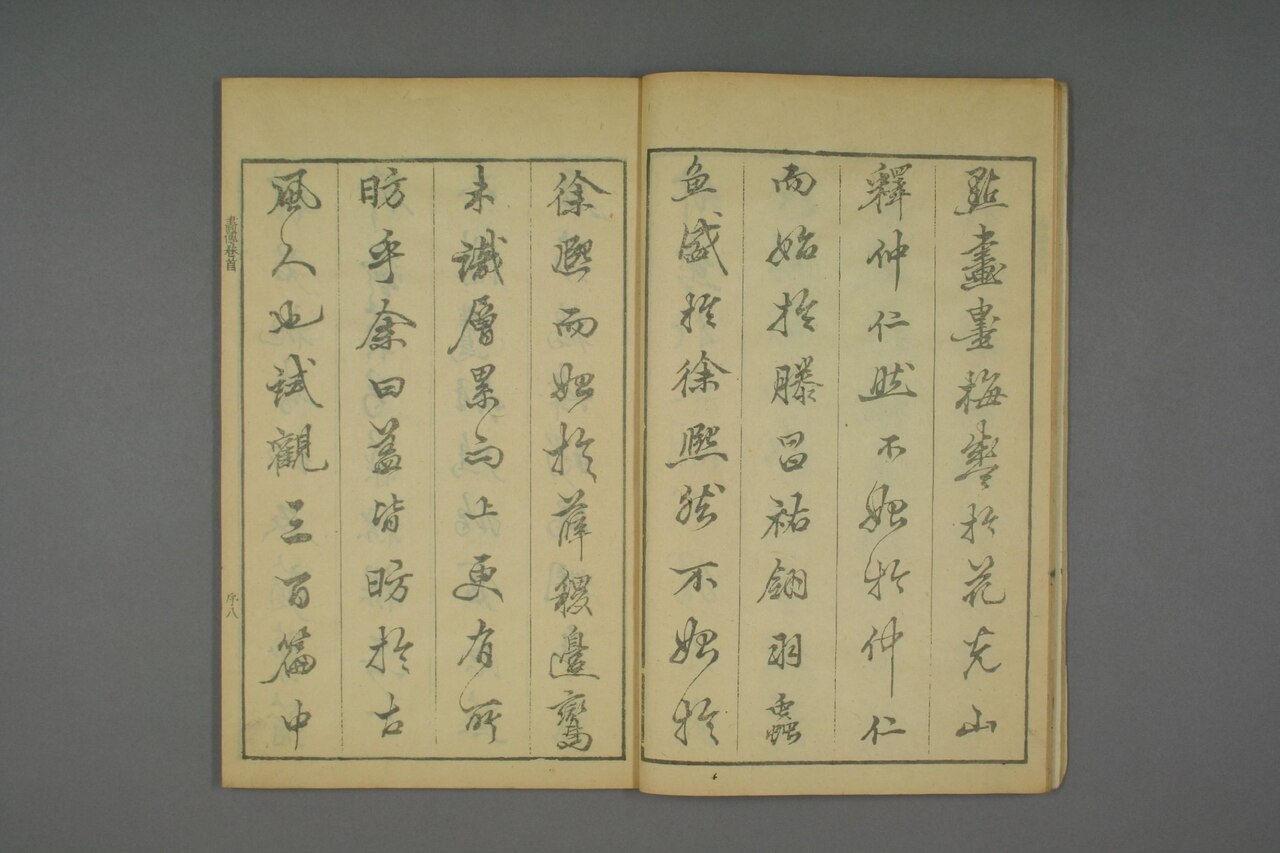 點畫畫梅於花光山
釋仲仁然不始於仲仁
而始於滕昌祐翎羽蟲
魚盛於徐熙然不始於
徐熙而始於薛稷邊鸞
未識層累而上更有所
昉乎余曰蓋皆昉於古
風人也試觀三百篇中
畫傳卷首
序八